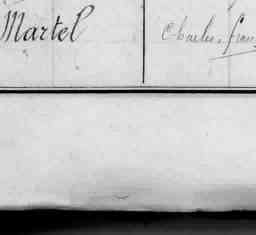 Martel Charles, fran